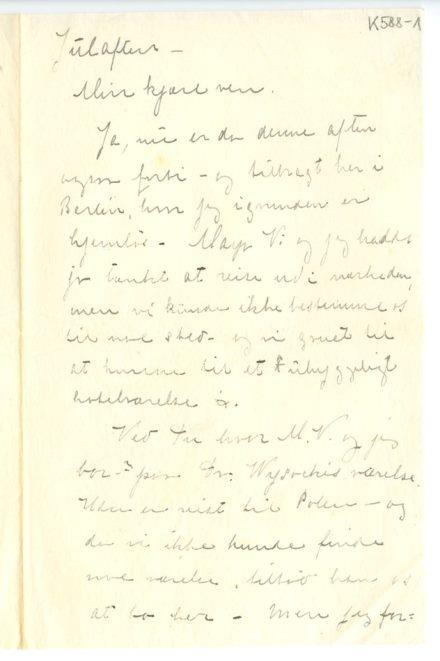 K588-1
Julaften -
Min kjære ven.
Ja, nu er da denne aften
også forbi - og tilbragt her i
Berlin, hvor jeg igrunden er
hjemløs - Mayr V. og jeg hadde
jo tænkt at reise ud i nærheden,
men vi kunde ikke bestemme os
til noe sted - og vi gruet til
at komme til et uhyggeligt
hotelværelse &.
Ved Du hvor M. V. og jeg
bor-? på Dr. Wysockis værelse.
Uden er reist til Polen - og
da vi ikke kunde finde
noe værelse, tilbød han os
at bo her - Men jeg for=